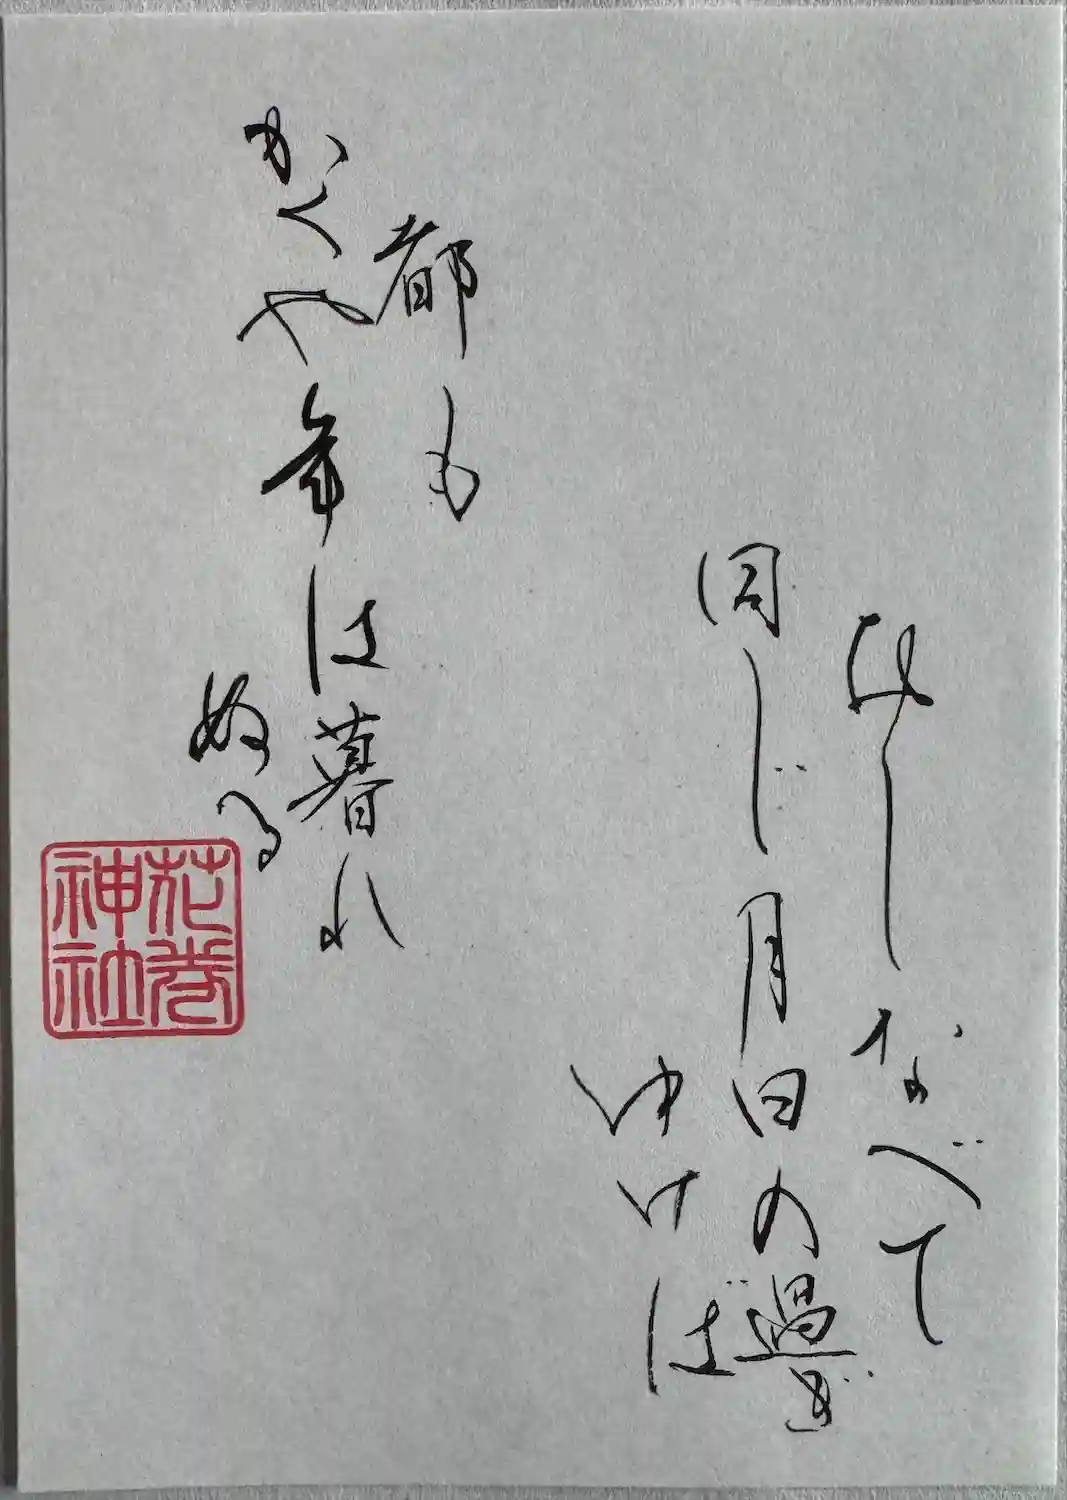 おしなべて
同じ月日の過ぎ
ゆけば
都も
かくや年は暮れ
ぬる
花巻
神社